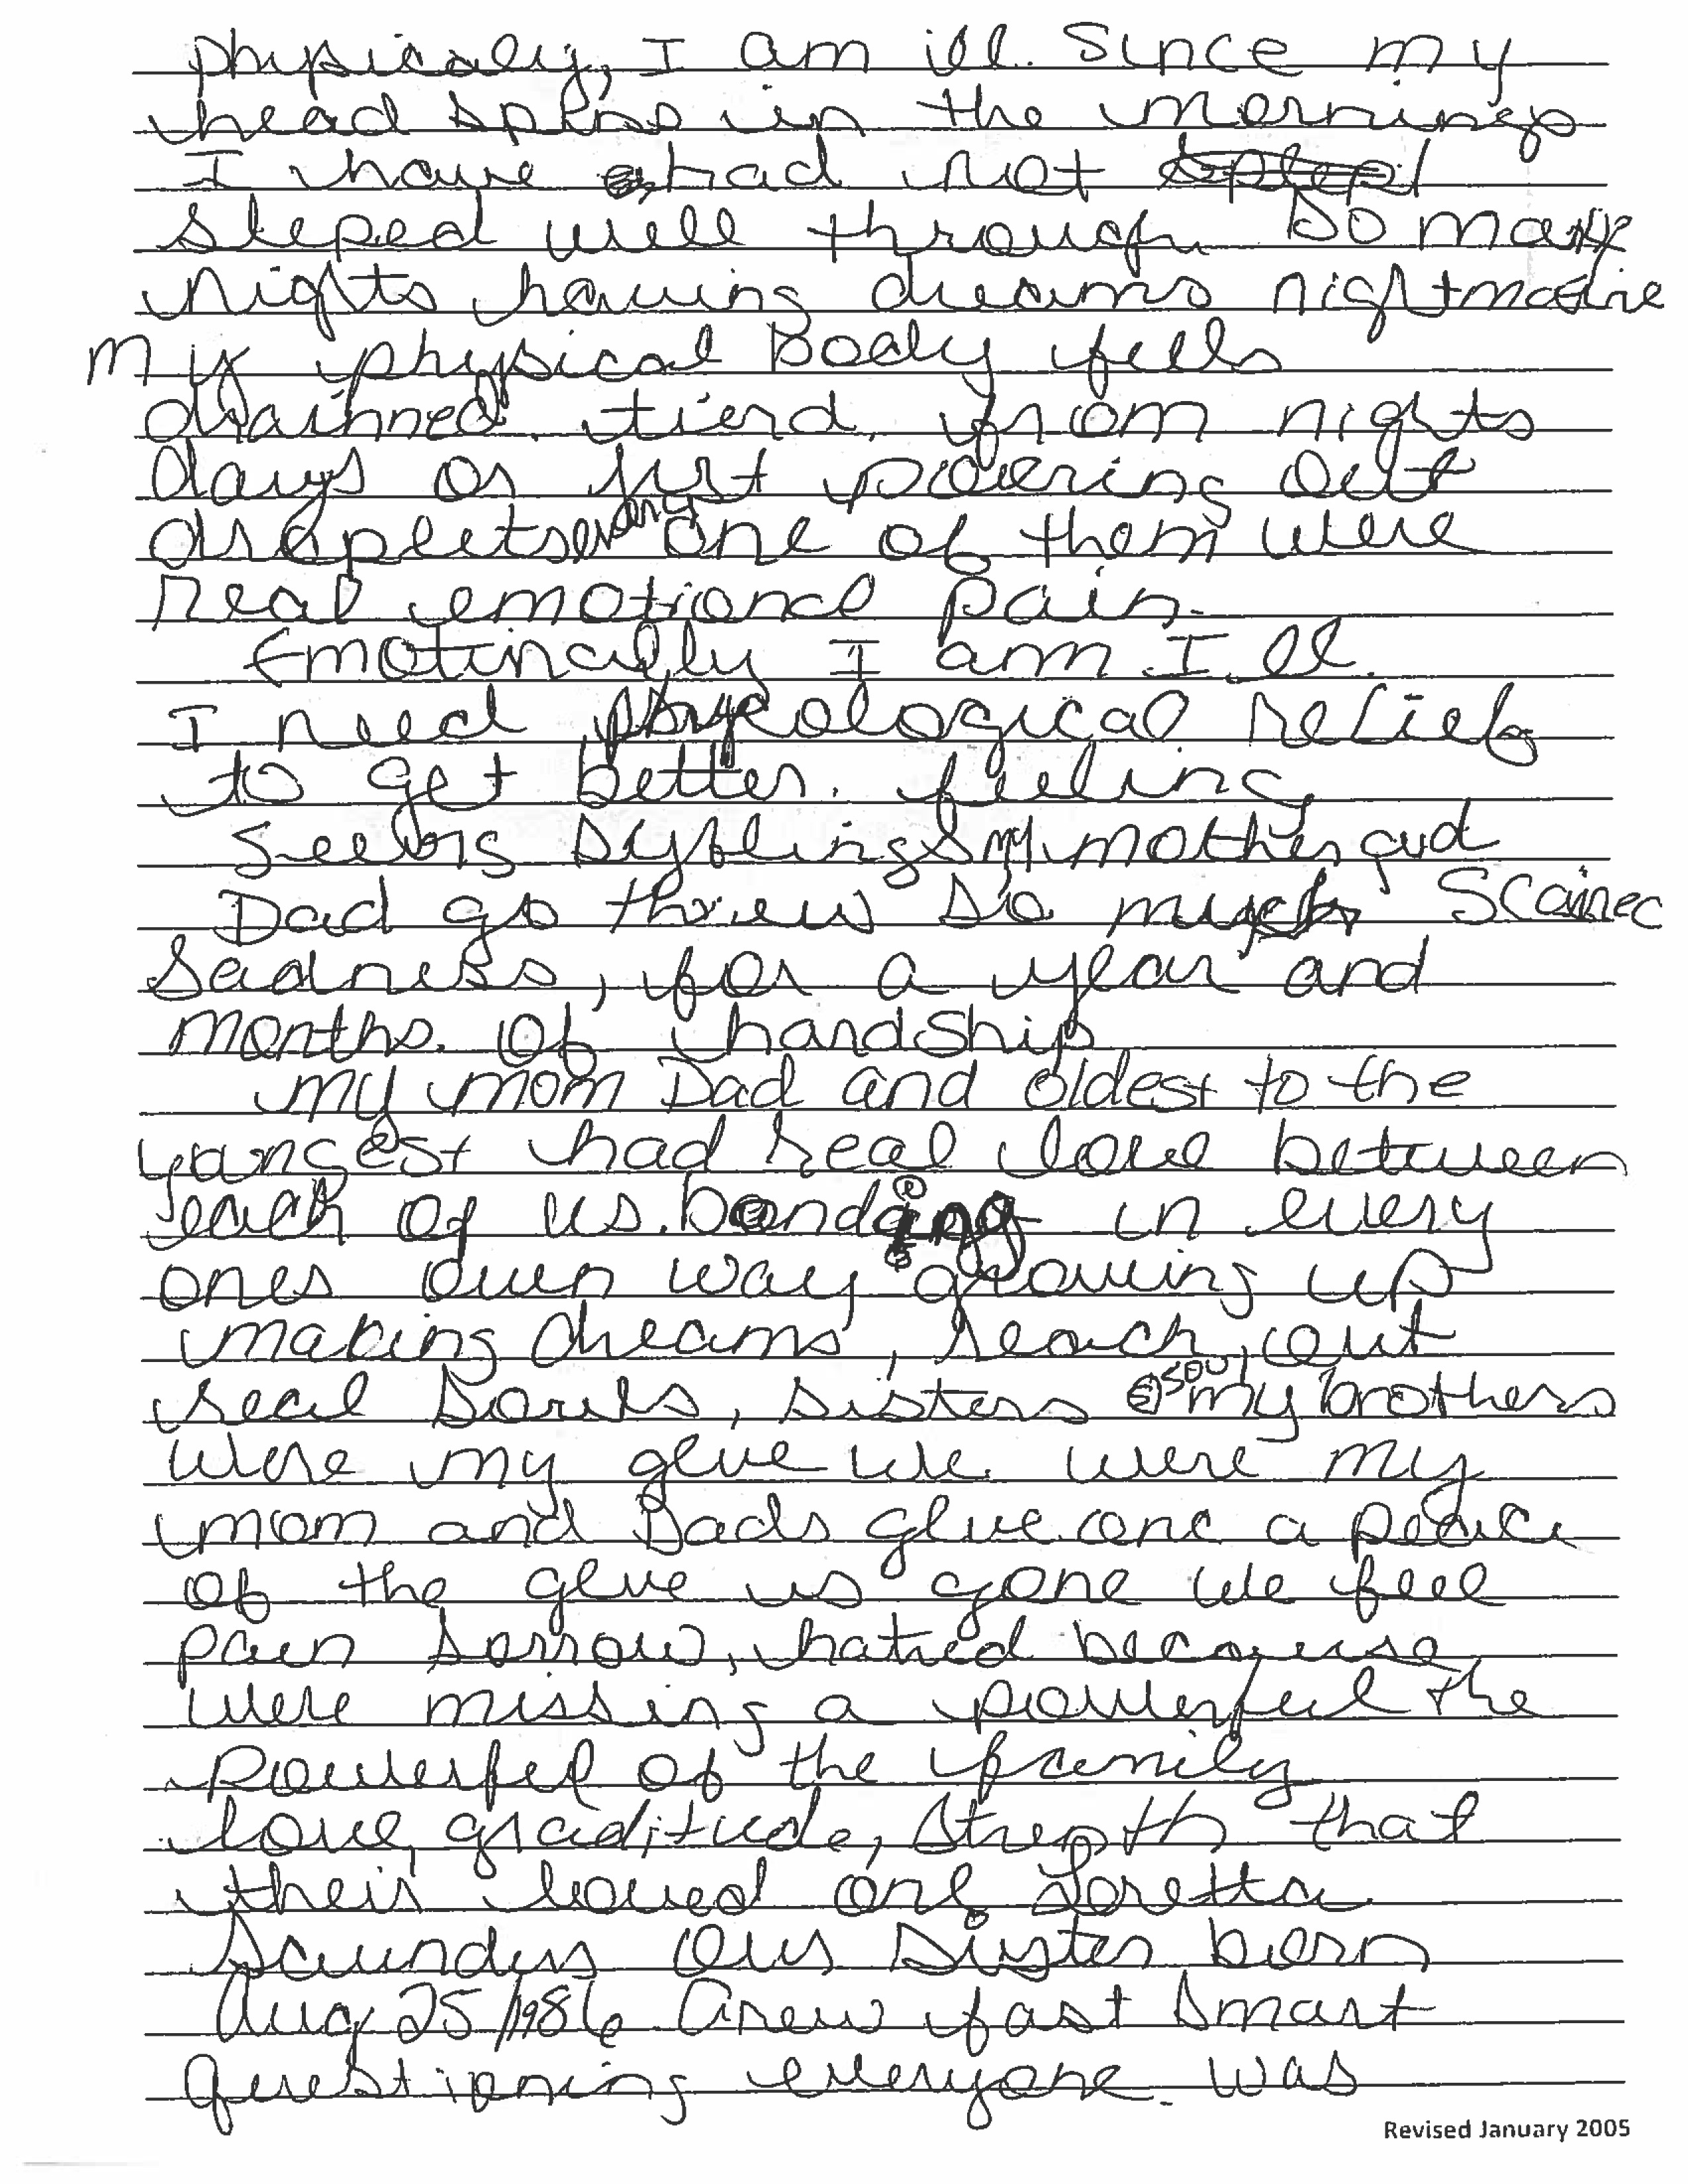 physicaly, I am ill. Since my
head spins in the mornings
I have had not
sleped well through so many
nights having dreams nightmare
My physical Body fells
drainned. tierd, from nights
days or just powering out
droplets any one of them were
real emotional pain.
Emotinally I am Ill.
I need phycological relief
to get better. feeling
Seeing Syblings my mother and
Dad go threw so much Scared
Sadness, for a year and
months. of hardship
my mom Dad and oldest to the
youngest had real love between
each of us. bonding in every
ones own way growing up
making dreams, reach, out
real Souls, sisters my brothers
were my glue we were my
mom and Dads glue one a peace
of the glue is gone we feel
pain sorrow, hatred because
were missing a powerful the
powerful of the family
love, graditude, strenth that
their loved one Loretta
Saunders our Sister born
Aug 25/1986 Grew fast Smart
questioning everyone. was
Revised January 2005